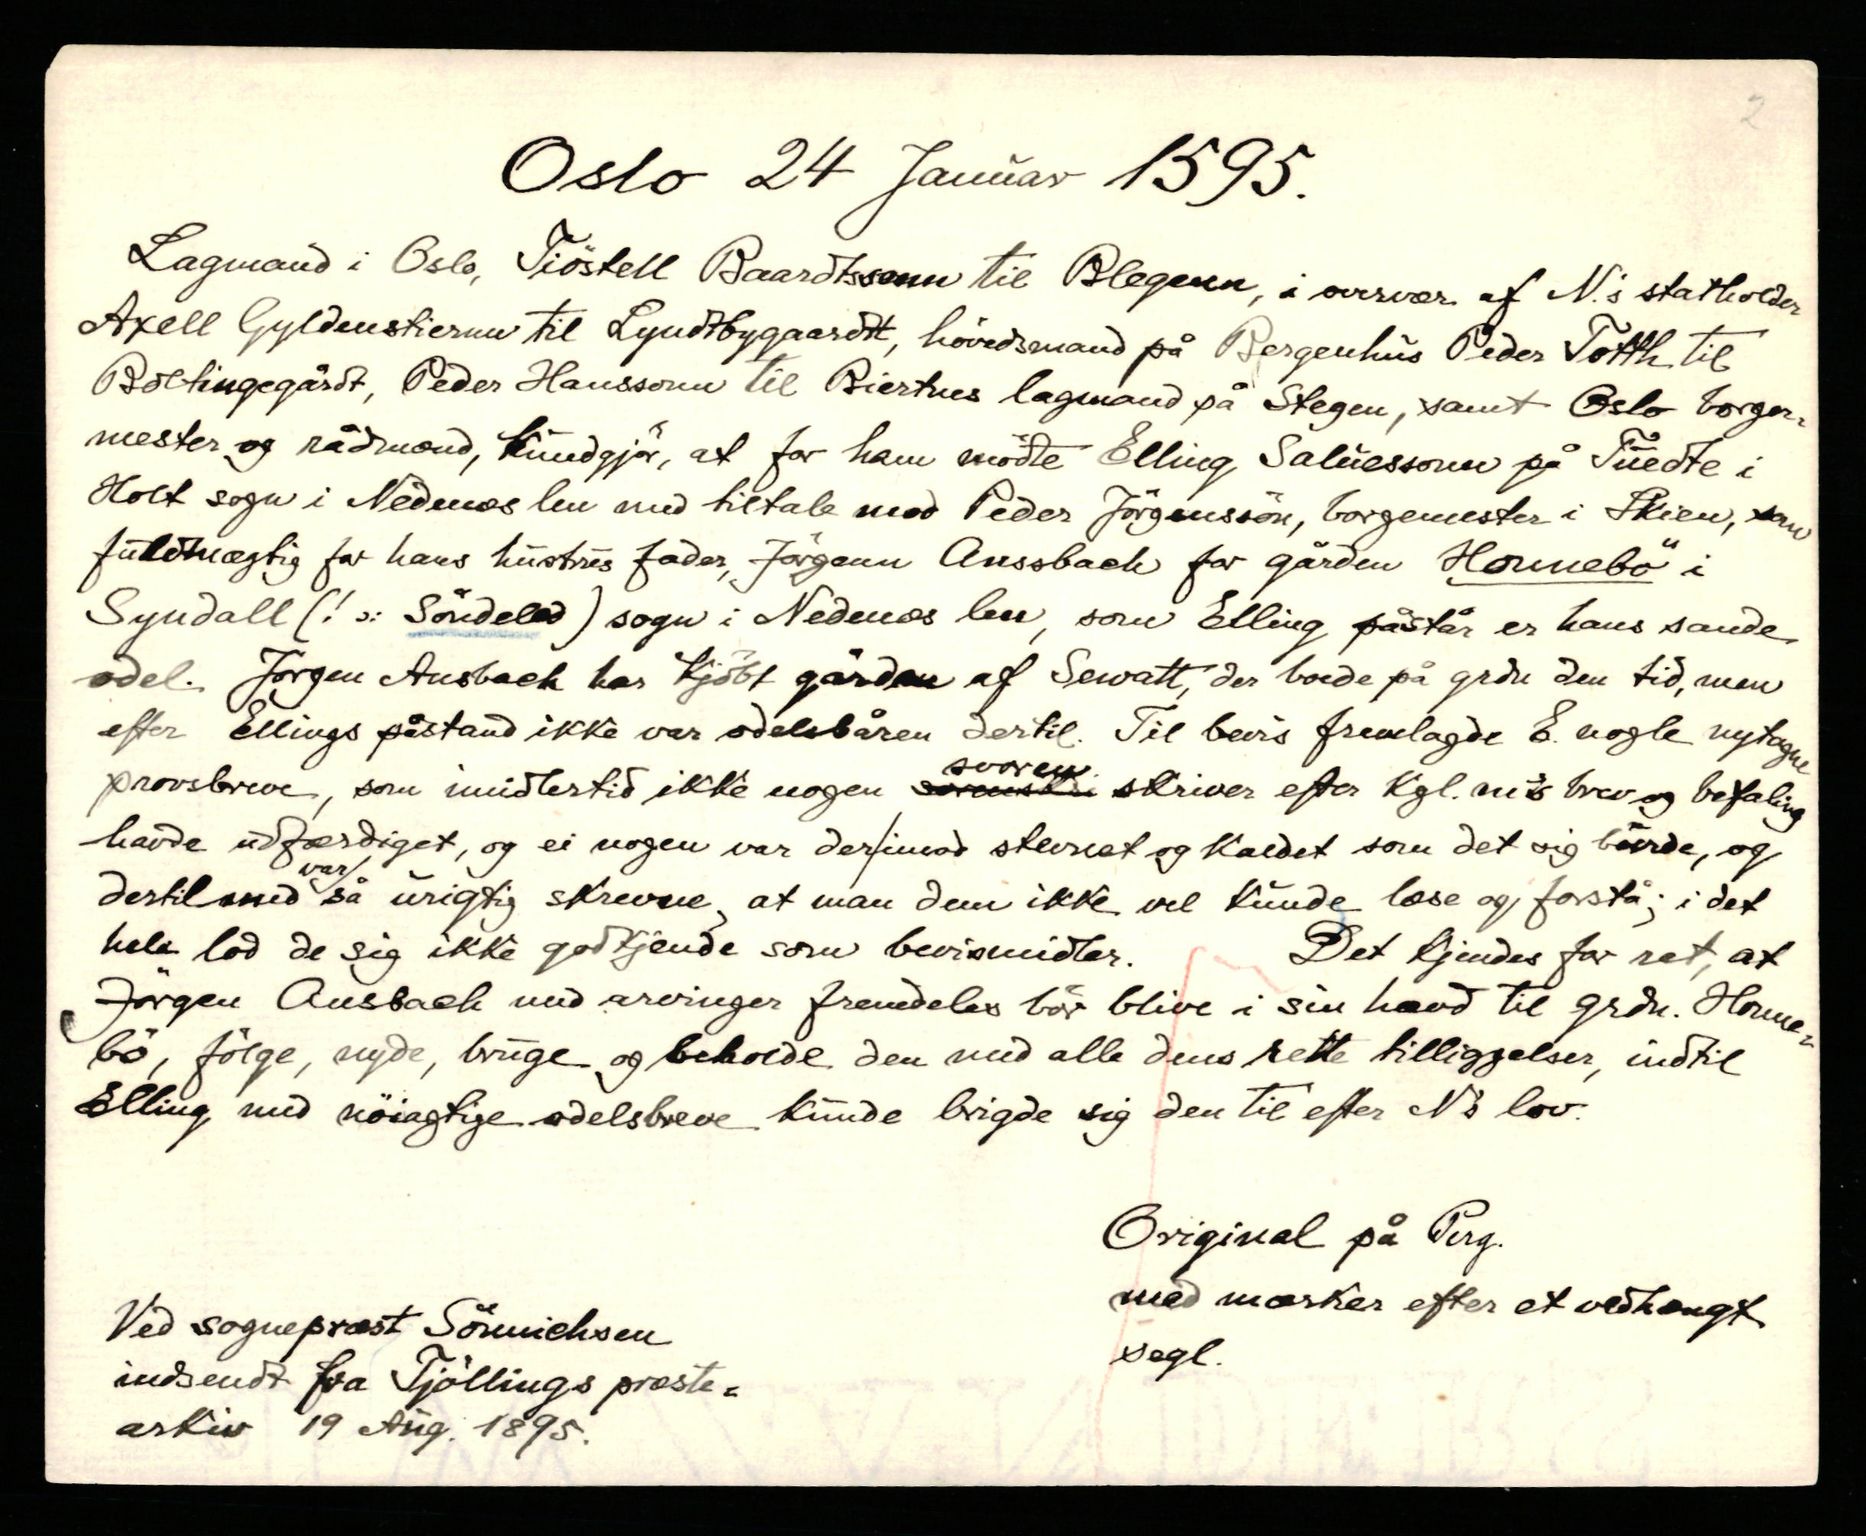 2
Oslo 24 Januar 1595.
Lagmand i Oslo, Tiöstell Baardtssonn til Blegenn, i overvær af N.'s statholder
Axell Gyldenstiernn til Lyndtbygaardtt, hövedsmand på Bergenhus Peder Totth til
Boltingegårdt, Peder Hanssonn til Biertnes lagmand på Stegen, samt Oslo borger-
mester og rådmænd, kundgjör, at for ham mödte Elling Saluessonn på Tuedte i
Holt sogn i Nedenæs len med tiltale mod Peder Jörgenssön, borgemester i Skien, som
fuldmægtig for hans hustrus fader, Jörgenn Anssbach for gården Hommebö i
Syndall (! ɔ: Söndeled) sogn i Nedenæs len, som Elling påstår er hans sande
odel. Jörgen Ansbach har kjöbt gården af Sewatt, der boede på grdn den tid, men
efter Ellings påstand ikke var odelsbåren dertil. Til bevis fremlagde E. nogle nytagne
provsbreve, som imidlertid ikke nogen sorenskri svoren skriver efter Kgl. m's brev og befaling
havde udfærdiget, og ei nogen var der/imod stevnet og kaldet som det sig burde, og
dertilmed var så urigtig skrevne, at man dem ikke vel kunde læse og forstå; i det
hele lod de sig ikke godkjende som bevismidler. Det kjendes for ret, at
Jörgen Ansbach med arvinger fremdeles bör blive i sin hævd til grdn. Homme-
bö, fölge, nyde, bruge og beholde den med alle dens rette tilliggelser, indtil
Elling med nöiagtige odelsbreve kunde brigde sig den til efter N's lov.
Original på Perg.
med mærker efter et vedhængt
segl.
Ved sogneprest Sönnichsen
indsendt fra Tjöllings præste-
arkiv 19 Aug. 1895.